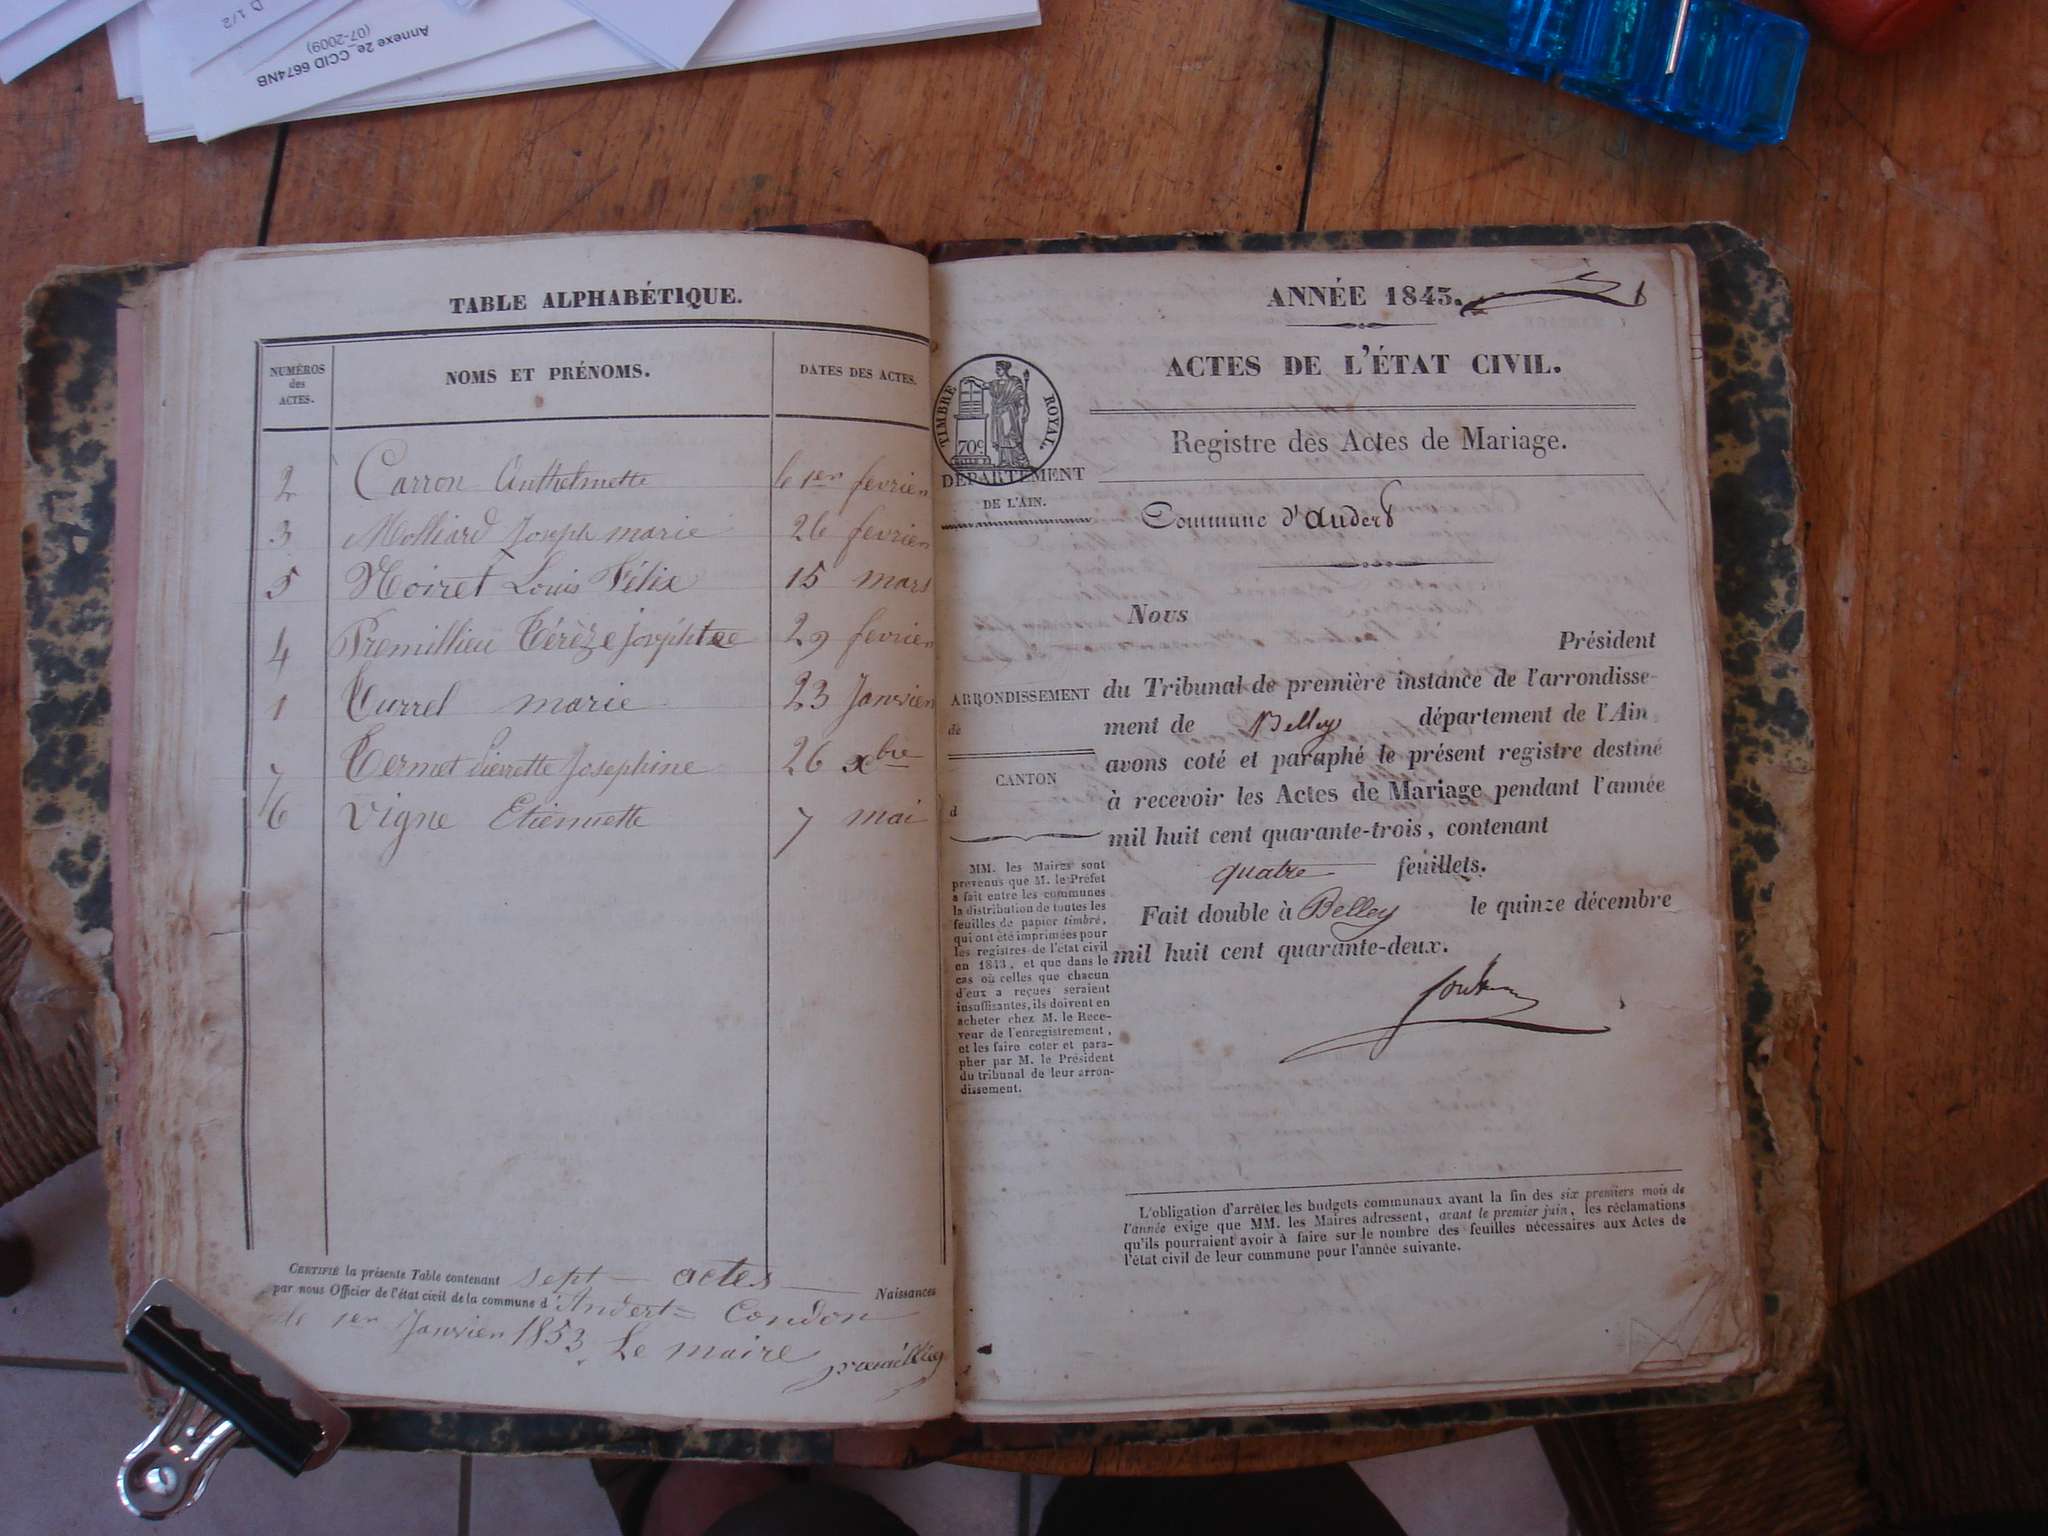 D 1/2
Annexe 2e_CCID 6674NB
(07-2009)
TABLE ALPHABÉTIQUE.
NUMÉROS
des
ACTES.
NOMS ET PRÉNOMS.
DATES DES ACTES.
2 Carron Anthelmette le 1er fevrier
3 Molliard Joseph marie 26 fevrier
5 Noiret Louis Félix 15 mars
4 Premillieu Térèze Josephtee 29 fevrier
1 Turrel marie 23 Janvier
7 Termet Pierrette Josephine 26 xbre
6 Vigne Etiennette 7 mai
CERTIFIÉ la présente Table contenant sept actes Naissances
par nous Officier de l'état civil de la commune d'Andert = Condon
le 1er Janvier 1853 Le maire
ANNÉE 1843.
ACTES DE L'ÉTAT CIVIL.
TIMBRE ROYAL.
70c
Registre des Actes de Mariage.
DÉPARTEMENT
DE L'AIN.
Commune d'Andert
Nous
Président
ARRONDISSEMENT
de
du Tribunal de première instance de l'arrondisse-
ment de Belley département de l'Ain
avons coté et paraphé le présent registre destiné
CANTON
d
à recevoir les Actes de Mariage pendant l'année
mil huit cent quarante-trois, contenant
quatre feuillets.
Fait double à Belley le quinze décembre
mil huit cent quarante-deux.
MM. les Maires sont
prévenus que M. le Préfet
a fait entre les communes
la distribution de toutes les
feuilles de papier timbré,
qui ont été imprimées pour
les registres de l'état civil
en 1843, et que dans le
cas où celles que chacun
d'eux a reçues seraient
insuffisantes, ils doivent en
acheter chez M. le Rece-
veur de l'enregistrement,
et les faire coter et para-
pher par M. le Président
du tribunal de leur arron-
dissement.
L'obligation d'arrêter les budgets communaux avant la fin des six premiers mois de
l'année exige que MM. les Maires adressent, avant le premier juin, les réclamations
qu'ils pourraient avoir à faire sur le nombre des feuilles nécessaires aux Actes de
l'état civil de leur commune pour l'année suivante.